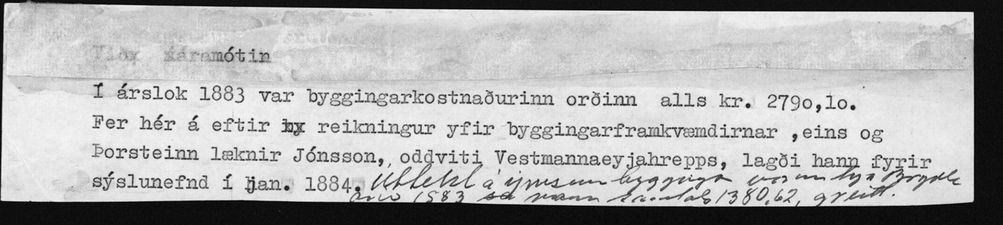 Við áramótin
Í árslok 1883 var byggingarkostnaðurinn orðinn alls kr. 2790,10.
Fer hér á eftir reikningur yfir byggingarframkvæmdirnar ,eins og
Þorsteinn læknir Jónsson, oddviti Vestmannaeyjahrepps, lagði hann fyrir
sýslunefnd í jan. 1884. Úttekt á ýmsum bygginga vörum hjá Bryde
árið 1883 samtals 1380,62, greitt.